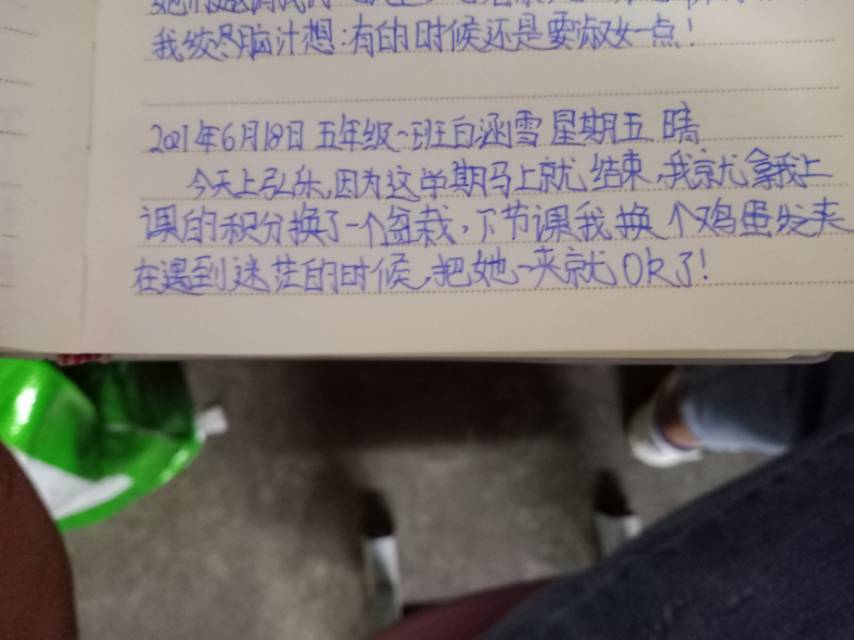 我绞尽脑汁想:有的时候还是要淑女一点!
2021年6月18日 五年级一班白涵雪 星期五 晴
今天上弘乐,因为这学期马上就 结束,我就拿我上
课的积分换了一个盆栽,下节课我换 个鸡蛋发夹
在遇到迷茫的时候,把她一夹就OK了!